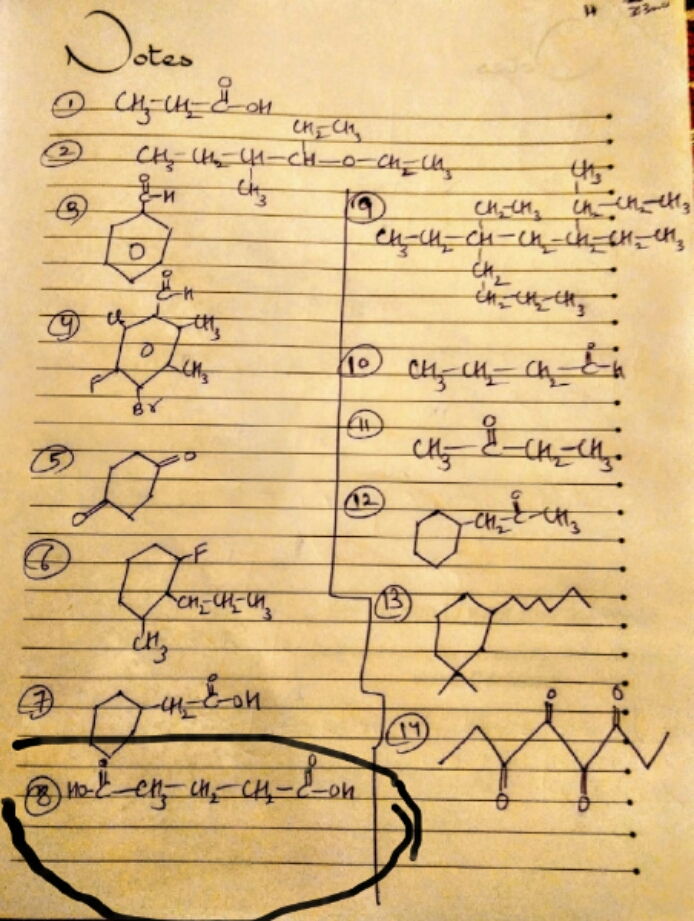 Notes
① CH3-CH2-C-OH
O
② CH3-CH2-CH-CH-O-CH2-CH3
CH2-CH3
CH3
③
O
C-H
④
O
C-H
CH3
CH3
Br
F
⑤
O
O
⑥
F
CH2-CH2-CH3
CH3
⑦
CH2-C-OH
O
⑧ HO-C-CH3-CH2-CH2-C-OH
O
O
⑨
CH3
CH2-CH3
CH2-CH2-CH3
CH3-CH2-CH-CH2-CH2-CH2-CH3
CH2
CH2-CH2-CH3
⑩ CH3-CH2-CH2-C-H
O
⑪
O
CH3-C-CH2-CH3
⑫
O
CH2-C-CH3
⑬
⑭
O
O
O
O